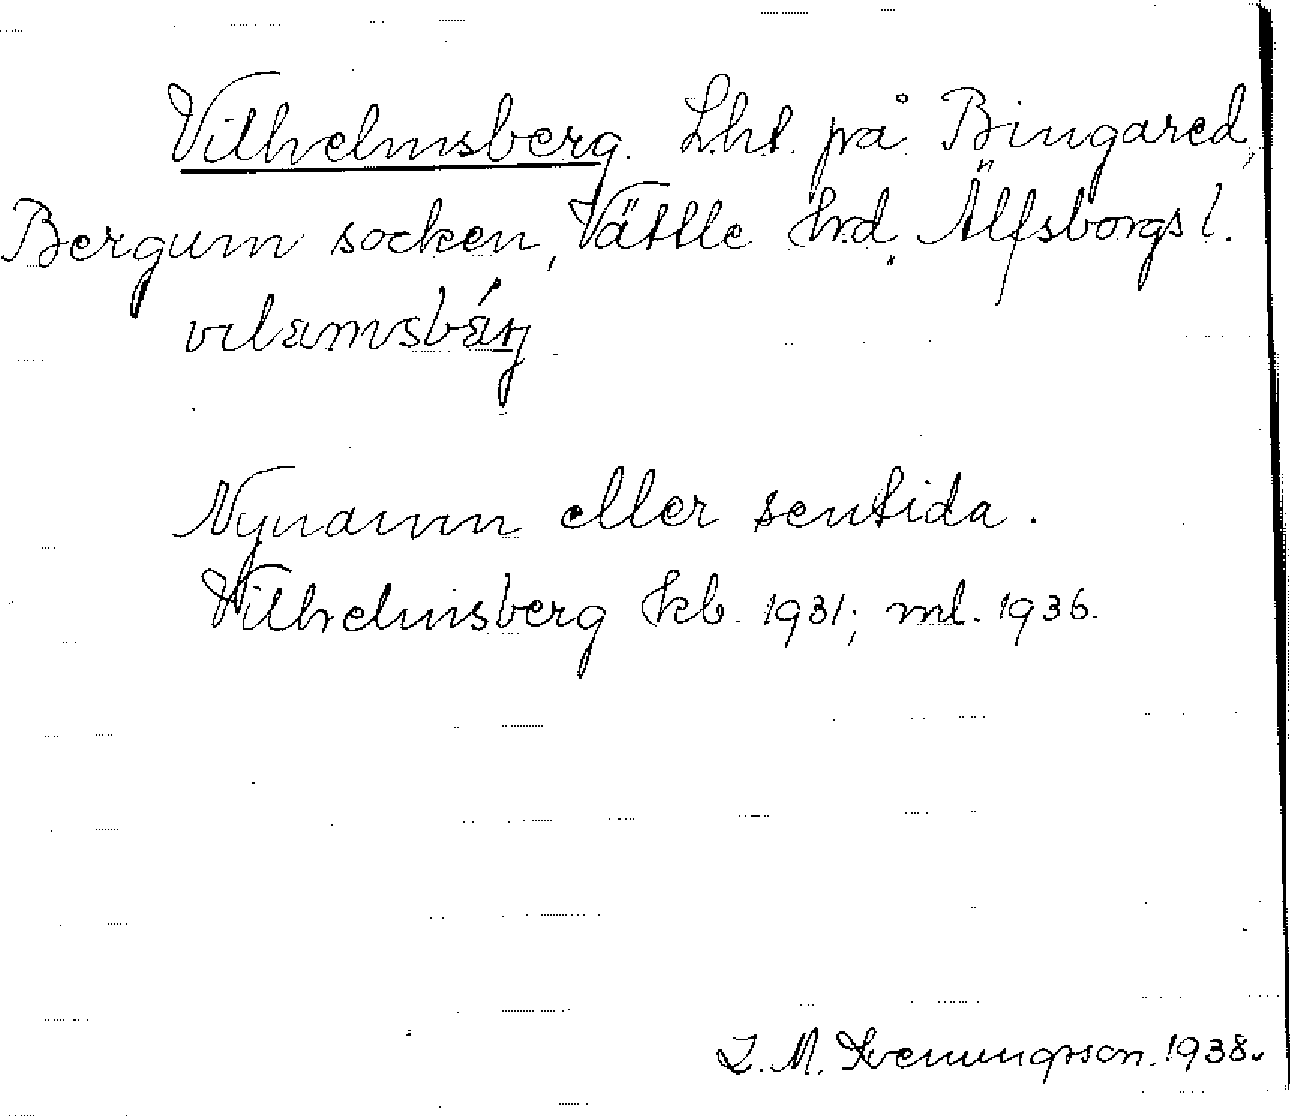 Vilhelmsberg. Lht. på Bingared,
Bergum socken, Vättle hrd, Älfsborgs l.
Nynamn eller sentida.
Vilhelmsberg kb. 1931; ml. 1936.
1938.